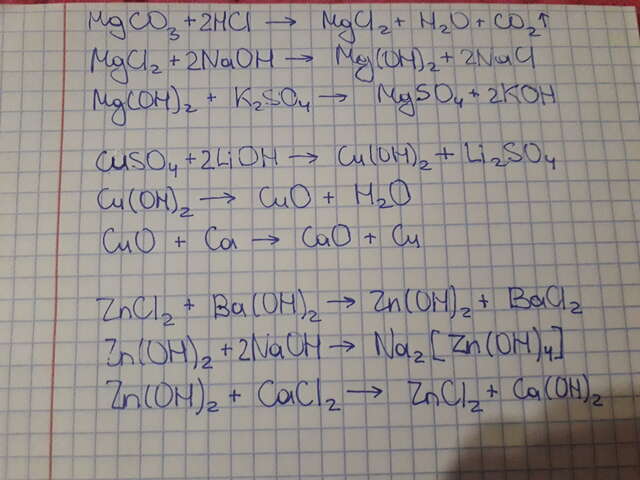 MgCO₃ + 2HCl → MgCl₂ + H₂O + CO₂↑
MgCl₂ + 2NaOH → Mg(OH)₂ + 2NaCl
Mg(OH)₂ + K₂SO₄ → MgSO₄ + 2KOH
CuSO₄ + 2LiOH → Cu(OH)₂ + Li₂SO₄
Cu(OH)₂ → CuO + H₂O
CuO + Ca → CaO + Cu
ZnCl₂ + Ba(OH)₂ → Zn(OH)₂ + BaCl₂
Zn(OH)₂ + 2NaOH → Na₂[Zn(OH)₄]
Zn(OH)₂ + CaCl₂ → ZnCl₂ + Ca(OH)₂